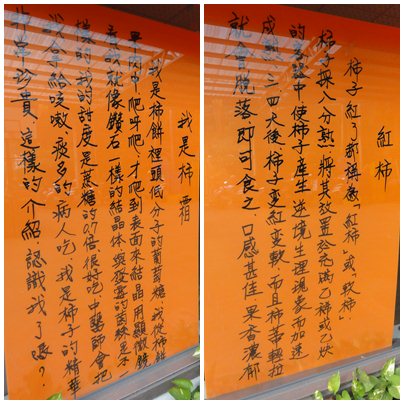 我是柿霜
我是柿餅裡頭低分子的葡萄糖,我從柿餅
果肉中爬呀爬,才爬到表面來結晶,用顯微鏡
看我就像鑽石一樣的結晶体與發霉的菌絲是不
樣的,我的甜度是蔗糖的0.7倍很好吃,中醫師會把
我拿給咳嗽、痰多的病人吃,我是柿子的精華
非常珍貴,這樣的介紹,認識我了嗎?
紅柿
柿子紅了都換做「紅柿」或「軟柿」
柿子採八分熟,將其放置於充滿乙烯或乙炔
的容器中使柿子產生逆境生理現象而加速
成熟,三四天後,柿子變紅變軟,而且柿蒂輕拉
就會脫落即可食之,口感甚佳,果香濃郁